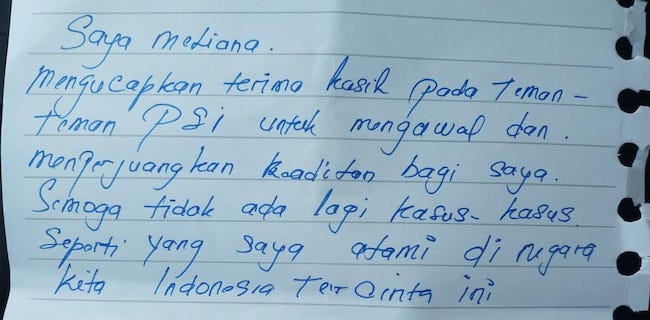 Saya meliana.
mengucapkan terima kasih pada teman-
teman PSi untuk mengawal dan.
memperjuangkan keadilan bagi saya.
Semoga tidak ada lagi kasus-kasus.
Seperti yang saya alami di negara
kita Indonesia Tercinta ini